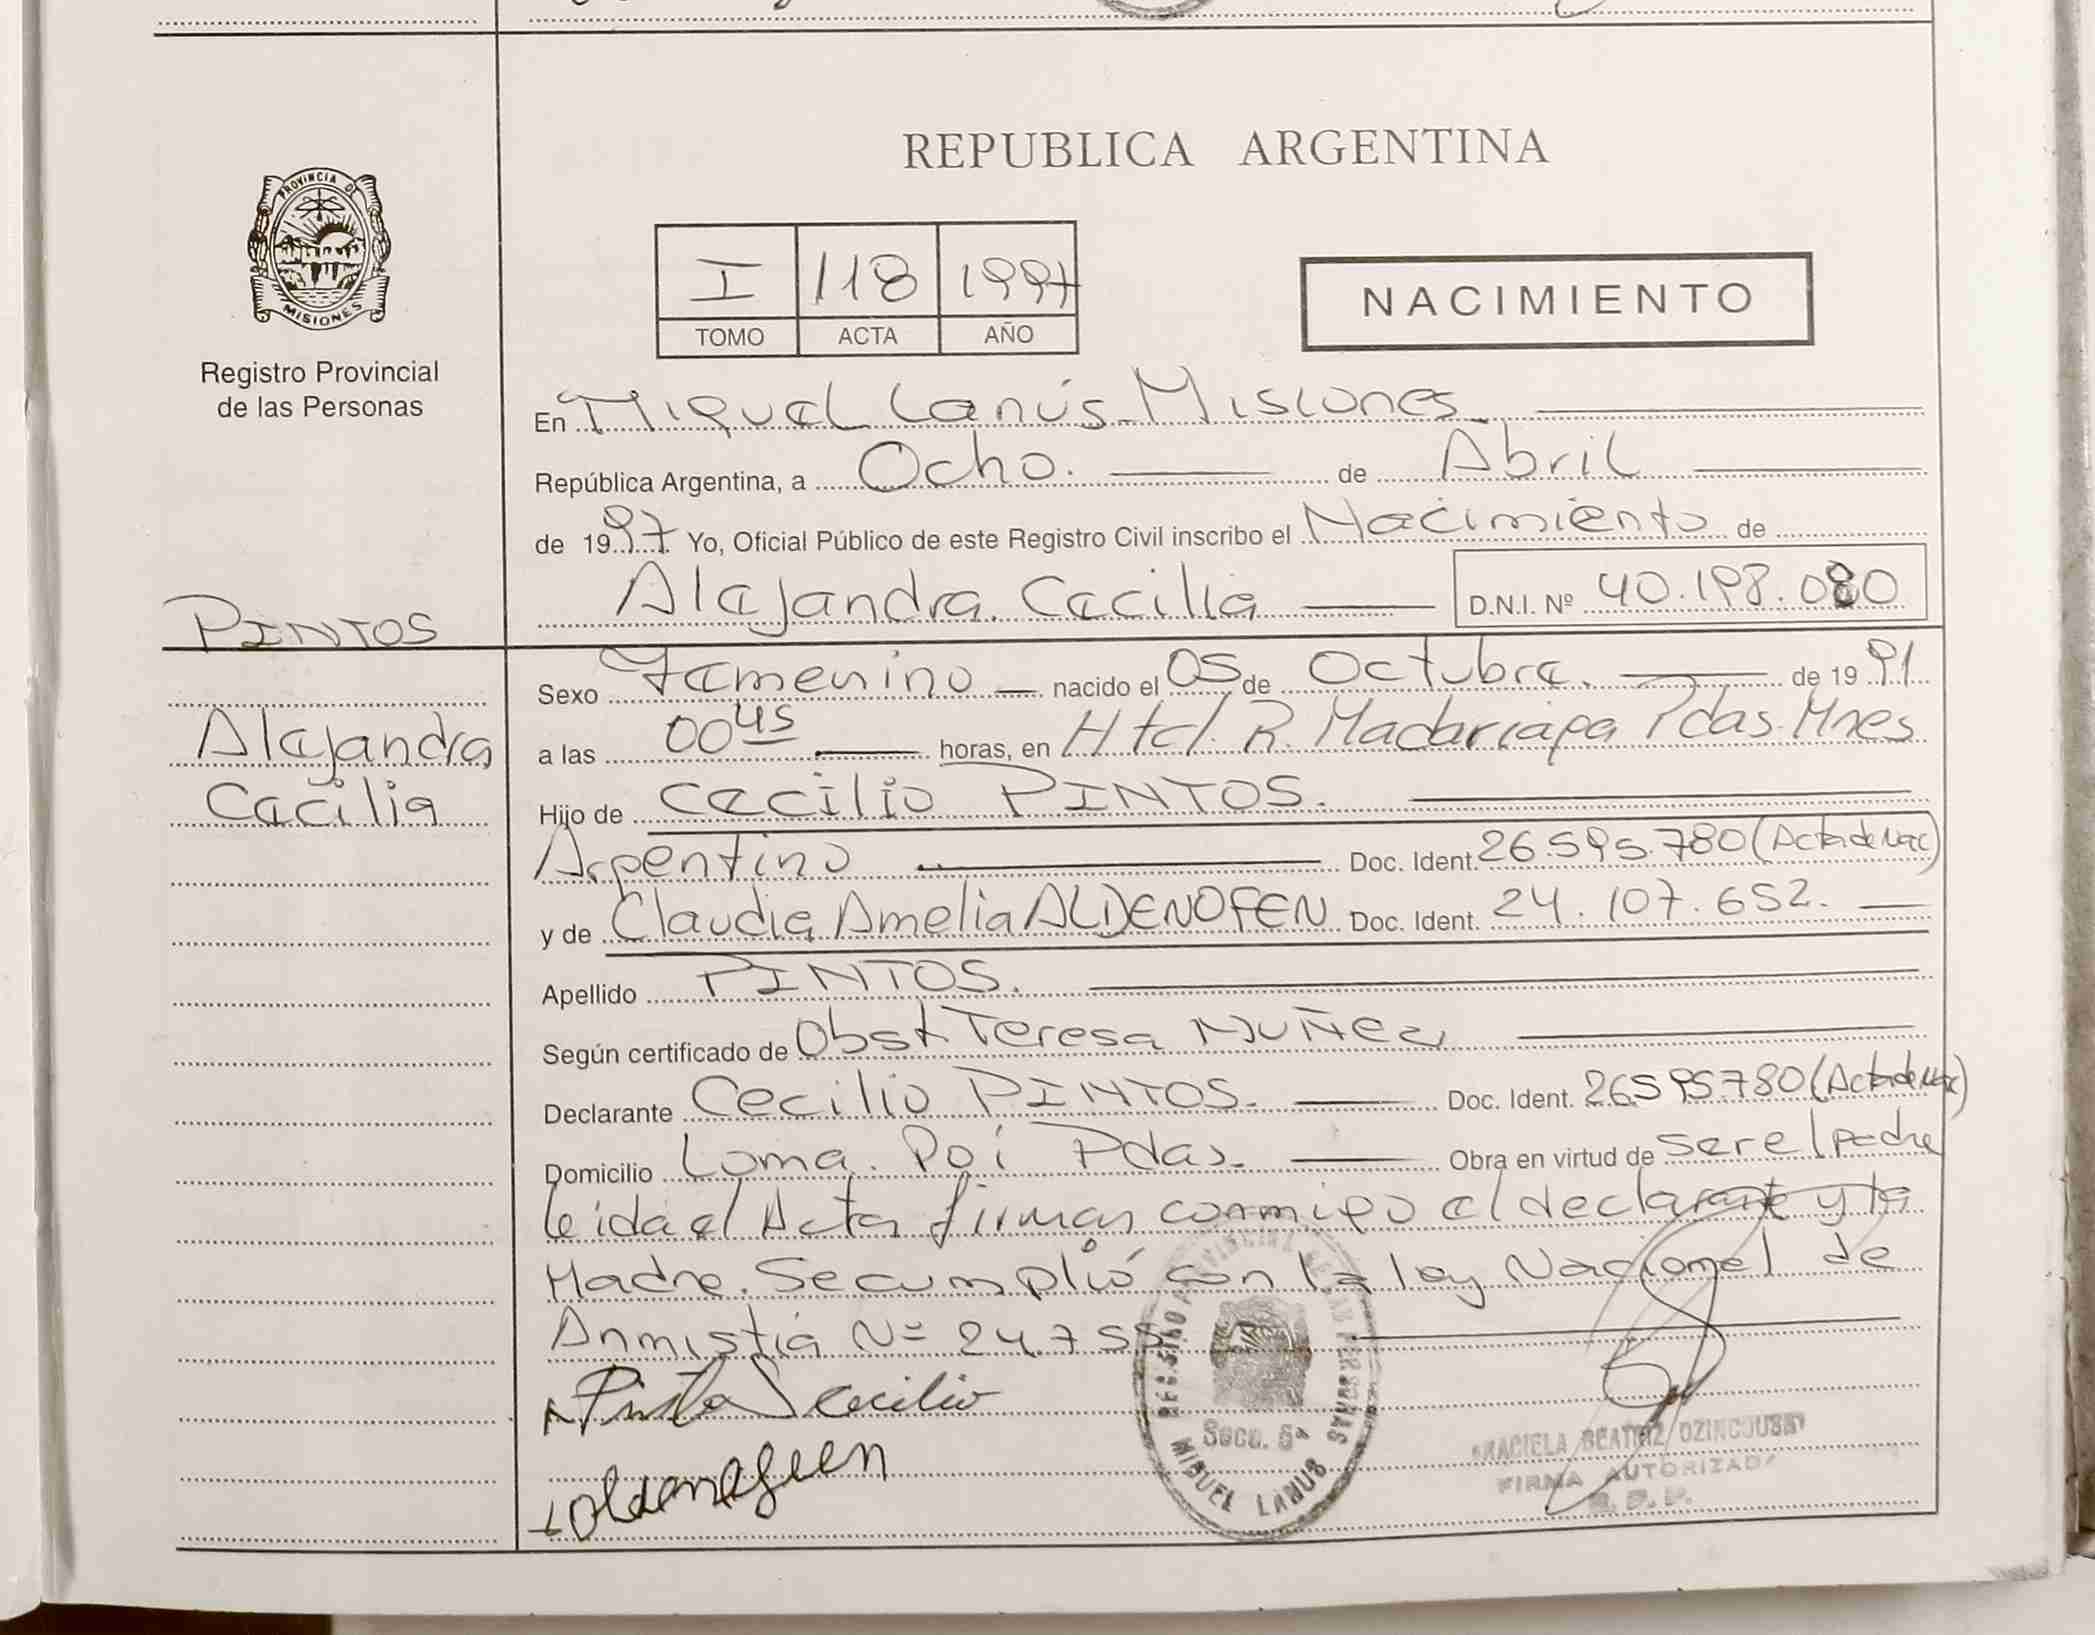 REPUBLICA ARGENTINA
PROVINCIA DE
MISIONES
Registro Provincial
de las Personas
I 118 1997
TOMO ACTA AÑO
NACIMIENTO
En Miguel Lanús Misiones
República Argentina, a Ocho. de Abril
de 1997 Yo, Oficial Público de este Registro Civil inscribo el Nacimiento de
Alejandra Cecilia D.N.I. Nº 40.198.080
PINTOS
Alejandra
Cecilia
Sexo Femenino nacido el 05 de Octubre. de 1991
a las 00 45 horas, en Htal. R. Madariaga Pdas. Mnes
Hijo de Cecilio PINTOS.
Argentino Doc. Ident. 26.595.780 (Acta de Nac)
y de Claudia Amelia ALDENOFEN Doc. Ident. 24.107.652.
Apellido PINTOS.
Según certificado de Obst Teresa NUÑEZ
Declarante Cecilio PINTOS. Doc. Ident. 26595780 (Acta de Nac)
Domicilio Loma Poi Pdas. Obra en virtud de ser el padre
leida el Acta firman conmigo el declarante y la
Madre. Se cumplió con la ley Nacional de
Anmistia Nº 24.755
Cecilio
REGISTRO PROVINCIAL DE LAS PERSONAS
Secc. 6ª
MIGUEL LANUS
BEATRIZ
FIRMA AUTORIZADA
R. P. P.